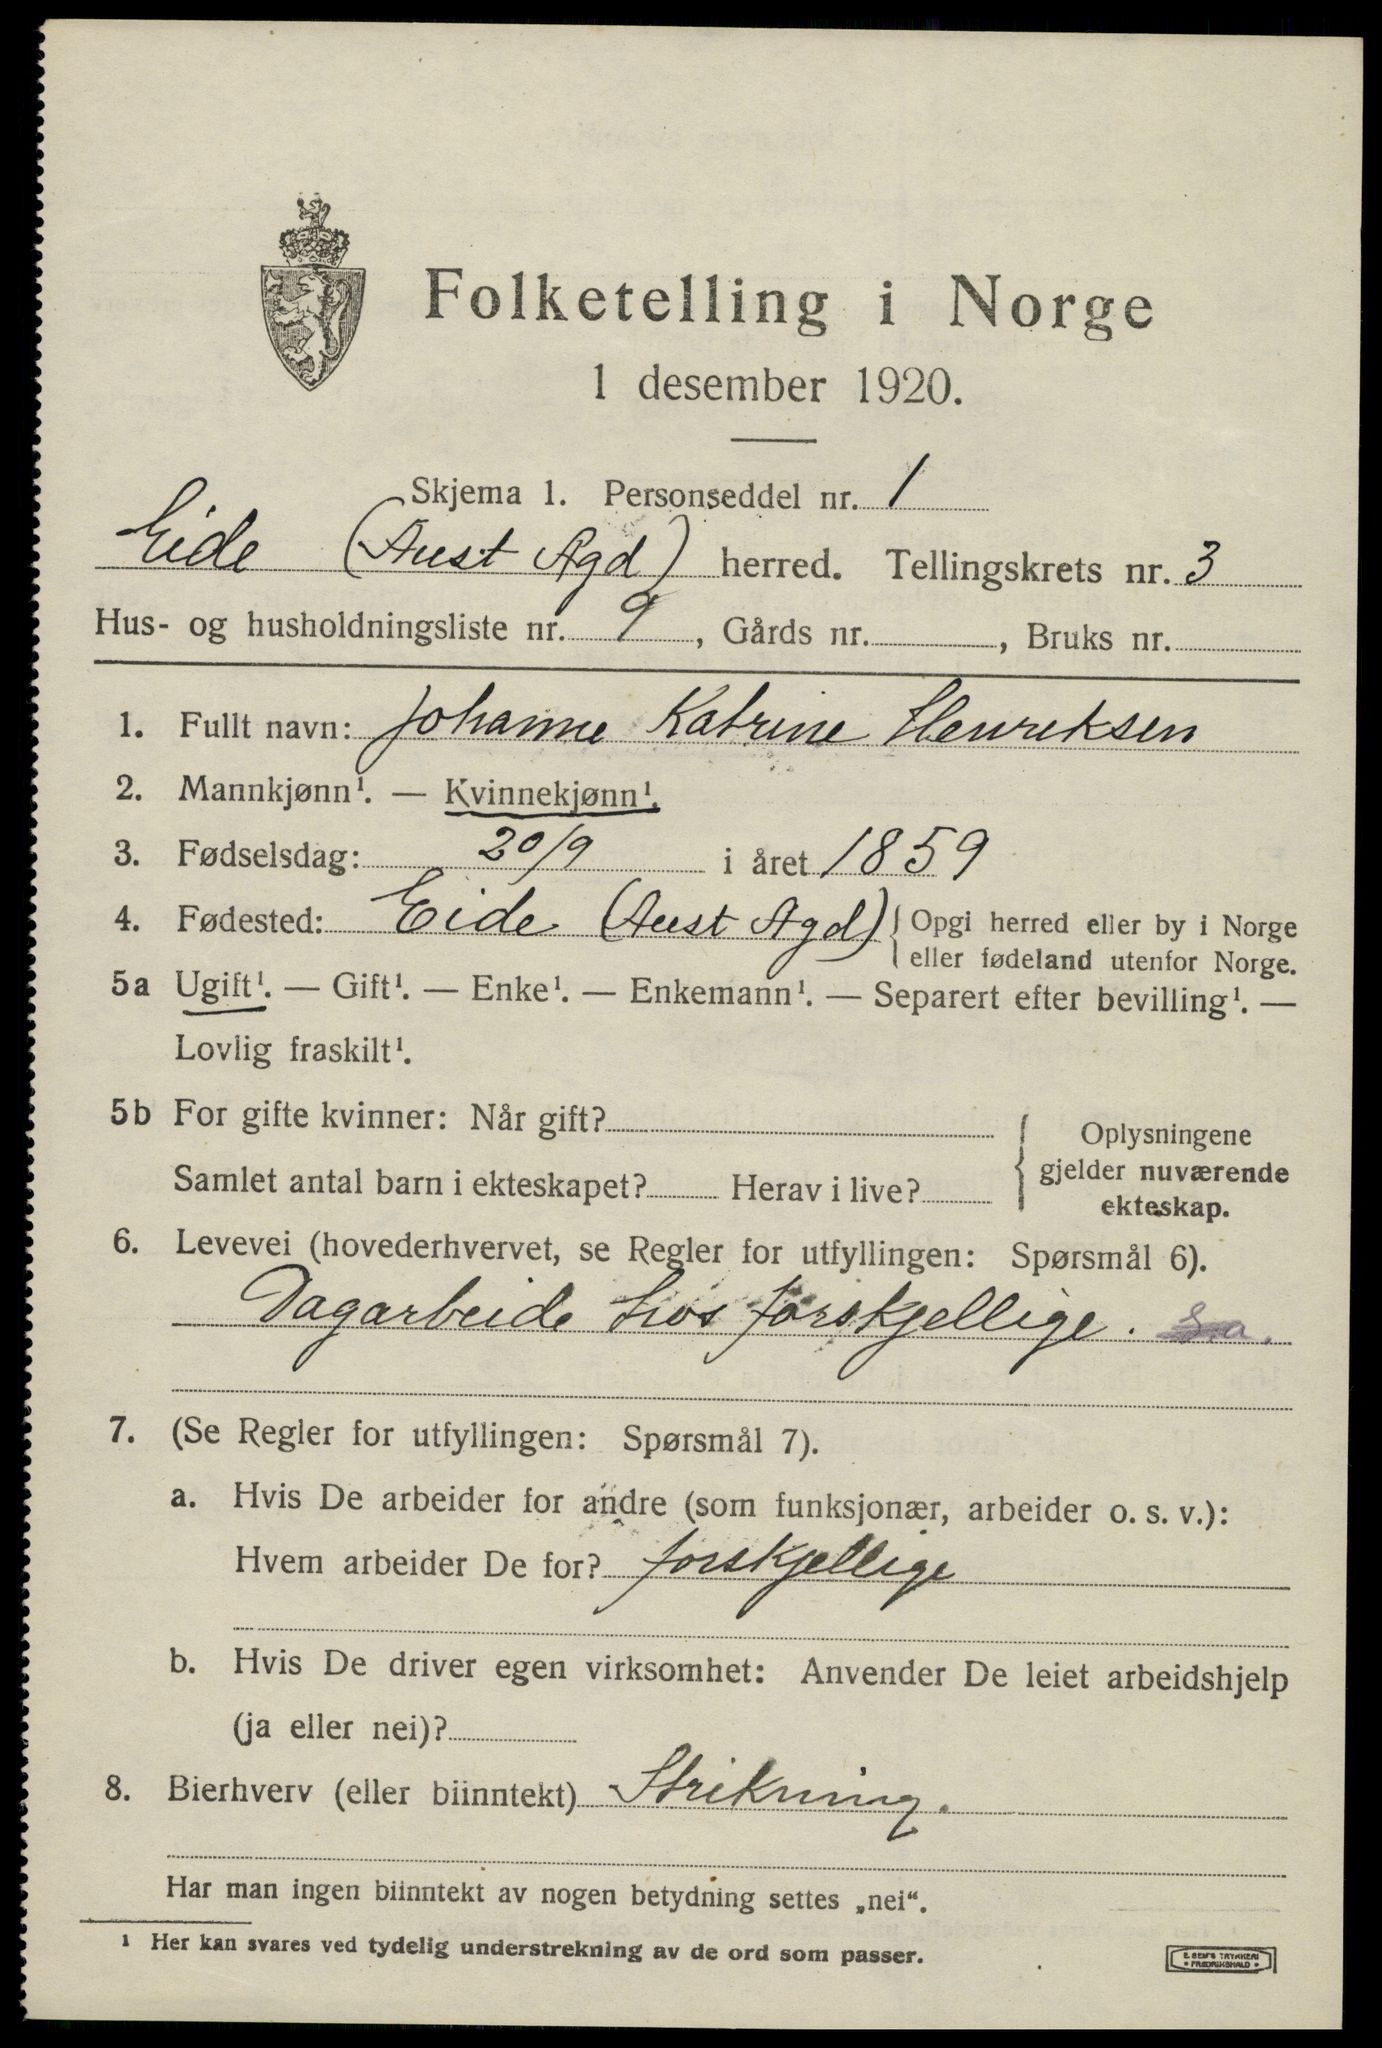 Folketelling i Norge
1 desember 1920.
Skjema 1. Personseddel nr. 1
Eide (Aust Agd) herred. Tellingskrets nr. 3
Hus- og husholdningsliste nr. 9, Gårds nr. , Bruks nr.
1. Fullt navn: Johanne Katrine Henriksen
2. Mannkjønn¹. — Kvinnekjønn¹.
3. Fødselsdag: 20/9 i året 1859
4. Fødested: Eide (Aust Agd) { Opgi herred eller by i Norge
eller fødeland utenfor Norge.
5a Ugift¹. — Gift¹. — Enke¹. — Enkemann¹. — Separert efter bevilling¹. —
Lovlig fraskilt¹.
5b For gifte kvinner: Når gift?
Samlet antal barn i ekteskapet? Herav i live?
Oplysningene
gjelder nuværende
ekteskap.
6. Levevei (hovederhvervet, se Regler for utfyllingen: Spørsmål 6).
Dagarbeide hos forskjellige.
7. (Se Regler for utfyllingen: Spørsmål 7).
a. Hvis De arbeider for andre (som funksjonær, arbeider o. s. v.):
Hvem arbeider De for? forskjellige
b. Hvis De driver egen virksomhet: Anvender De leiet arbeidshjelp
(ja eller nei)?
8. Bierhverv (eller biinntekt) Strikning.
Har man ingen biinntekt av nogen betydning settes „nei“.
¹ Her kan svares ved tydelig understrekning av de ord som passer.
E. SEM'S TRYKKERI
FREDRIKSHALD